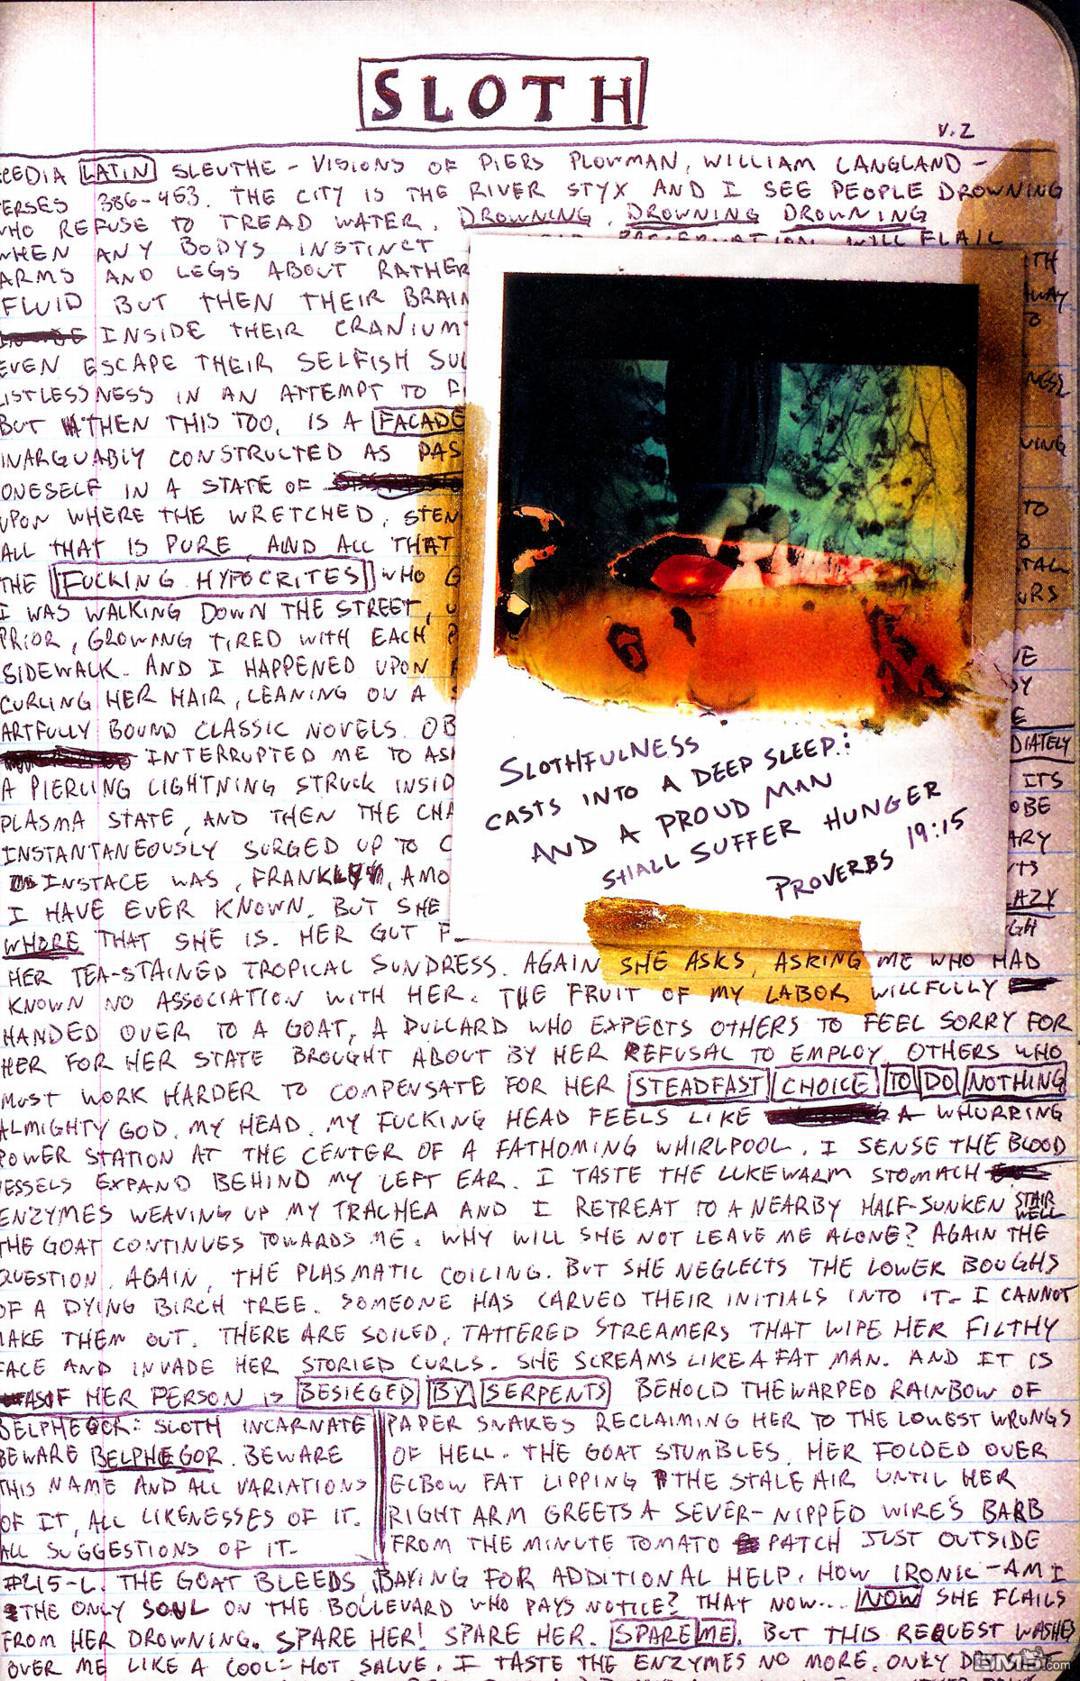 SLOTH
V.2
CEDIA LATIN SLEUTHE - VISIONS OF PIERS PLOWMAN, WILLIAM LANGLAND -
ERSES 386-453. THE CITY IS THE RIVER STYX AND I SEE PEOPLE DROWNING
WHO REFUSE TO TREAD WATER. DROWNING, DROWNING DROWNING
WHEN ANY BODYS INSTINCT PRESERVATION WILL FLAIL
ARMS AND LEGS ABOUT RATHER TH
FLUID BUT THEN THEIR BRAIN WAY
INSIDE THEIR CRANIUM
EVEN ESCAPE THEIR SELFISH
LISTLESSNESS IN AN ATTEMPT TO
BUT THEN THIS TOO, IS A FACADE
INARGUABLY CONSTRUCTED AS PAS VING
ONESELF IN A STATE OF
UPON WHERE THE WRETCHED, STEN TO
ALL THAT IS PURE AND ALL THAT
THE FUCKING HYPOCRITES WHO G TAL
I WAS WALKING DOWN THE STREET, URS
PRIOR, GROWING TIRED WITH EACH
SIDEWALK. AND I HAPPENED UPON VE
CURLING HER HAIR, LEANING ON A DY
ARTFULLY BOUND CLASSIC NOVELS. OB E
INTERRUPTED ME TO AS DIATELY
A PIERCING LIGHTNING STRUCK INSID ITS
PLASMA STATE, AND THEN THE CHA OBE
INSTANTANEOUSLY SURGED UP TO C ARY
INSTACE WAS, FRANKLY, AMO TS
I HAVE EVER KNOWN. BUT SHE AZY
WHORE THAT SHE IS. HER GUT GH
SLOTHFULNESS
CASTS INTO A DEEP SLEEP:
AND A PROUD MAN
SHALL SUFFER HUNGER
PROVERBS 19:15
HER TEA-STAINED TROPICAL SUNDRESS. AGAIN SHE ASKS, ASKING ME WHO HAD
KNOWN NO ASSOCIATION WITH HER. THE FRUIT OF MY LABOR WILLFULLY
HANDED OVER TO A GOAT, A DULLARD WHO EXPECTS OTHERS TO FEEL SORRY FOR
HER FOR HER STATE BROUGHT ABOUT BY HER REFUSAL TO EMPLOY. OTHERS WHO
MUST WORK HARDER TO COMPENSATE FOR HER STEADFAST CHOICE TO DO NOTHING
ALMIGHTY GOD. MY HEAD. MY FUCKING HEAD FEELS LIKE A WHURRING
POWER STATION AT THE CENTER OF A FATHOMING WHIRLPOOL. I SENSE THE BLOOD
ESSELS EXPAND BEHIND MY LEFT EAR. I TASTE THE LUKEWARM STOMACH
ENZYMES WEAVING UP MY TRACHEA AND I RETREAT TO A NEARBY HALF-SUNKEN STAIR WELL
THE GOAT CONTINUES TOWARDS ME. WHY WILL SHE NOT LEAVE ME ALONE? AGAIN THE
QUESTION. AGAIN, THE PLASMATIC COILING. BUT SHE NEGLECTS THE LOWER BOUGHS
OF A DYING BIRCH TREE. SOMEONE HAS CARVED THEIR INITIALS INTO IT- I CANNOT
MAKE THEM OUT. THERE ARE SOILED, TATTERED STREAMERS THAT WIPE HER FILTHY
FACE AND INVADE HER STORIED CURLS. SHE SCREAMS LIKE A FAT MAN. AND IT IS
AS IF HER PERSON IS BESIEGED BY SERPENTS BEHOLD THE WARPED RAINBOW OF
BELPHEGOR: SLOTH INCARNATE
BEWARE BELPHEGOR. BEWARE
THIS NAME AND ALL VARIATIONS
OF IT, ALL LIKENESSES OF IT.
ALL SUGGESTIONS OF IT-
PAPER SNAKES RECLAIMING HER TO THE LOWEST WRUNGS
OF HELL. THE GOAT STUMBLES. HER FOLDED OVER
ELBOW FAT LIPPING THE STALE AIR UNTIL HER
RIGHT ARM GREETS A SEVER-NIPPED WIRE'S BARB
FROM THE MINUTE TOMATO PATCH JUST OUTSIDE
#215-L. THE GOAT BLEEDS, BAYING FOR ADDITIONAL HELP. HOW IRONIC - AM I
THE ONLY SOUL ON THE BOULEVARD WHO PAYS NOTICE? THAT NOW... NOW SHE FLAILS
FROM HER DROWNING. SPARE HER! SPARE HER. SPARE ME. BUT THIS REQUEST WASHES
OVER ME LIKE A COOL-HOT SALVE. I TASTE THE ENZYMES NO MORE. ONLY